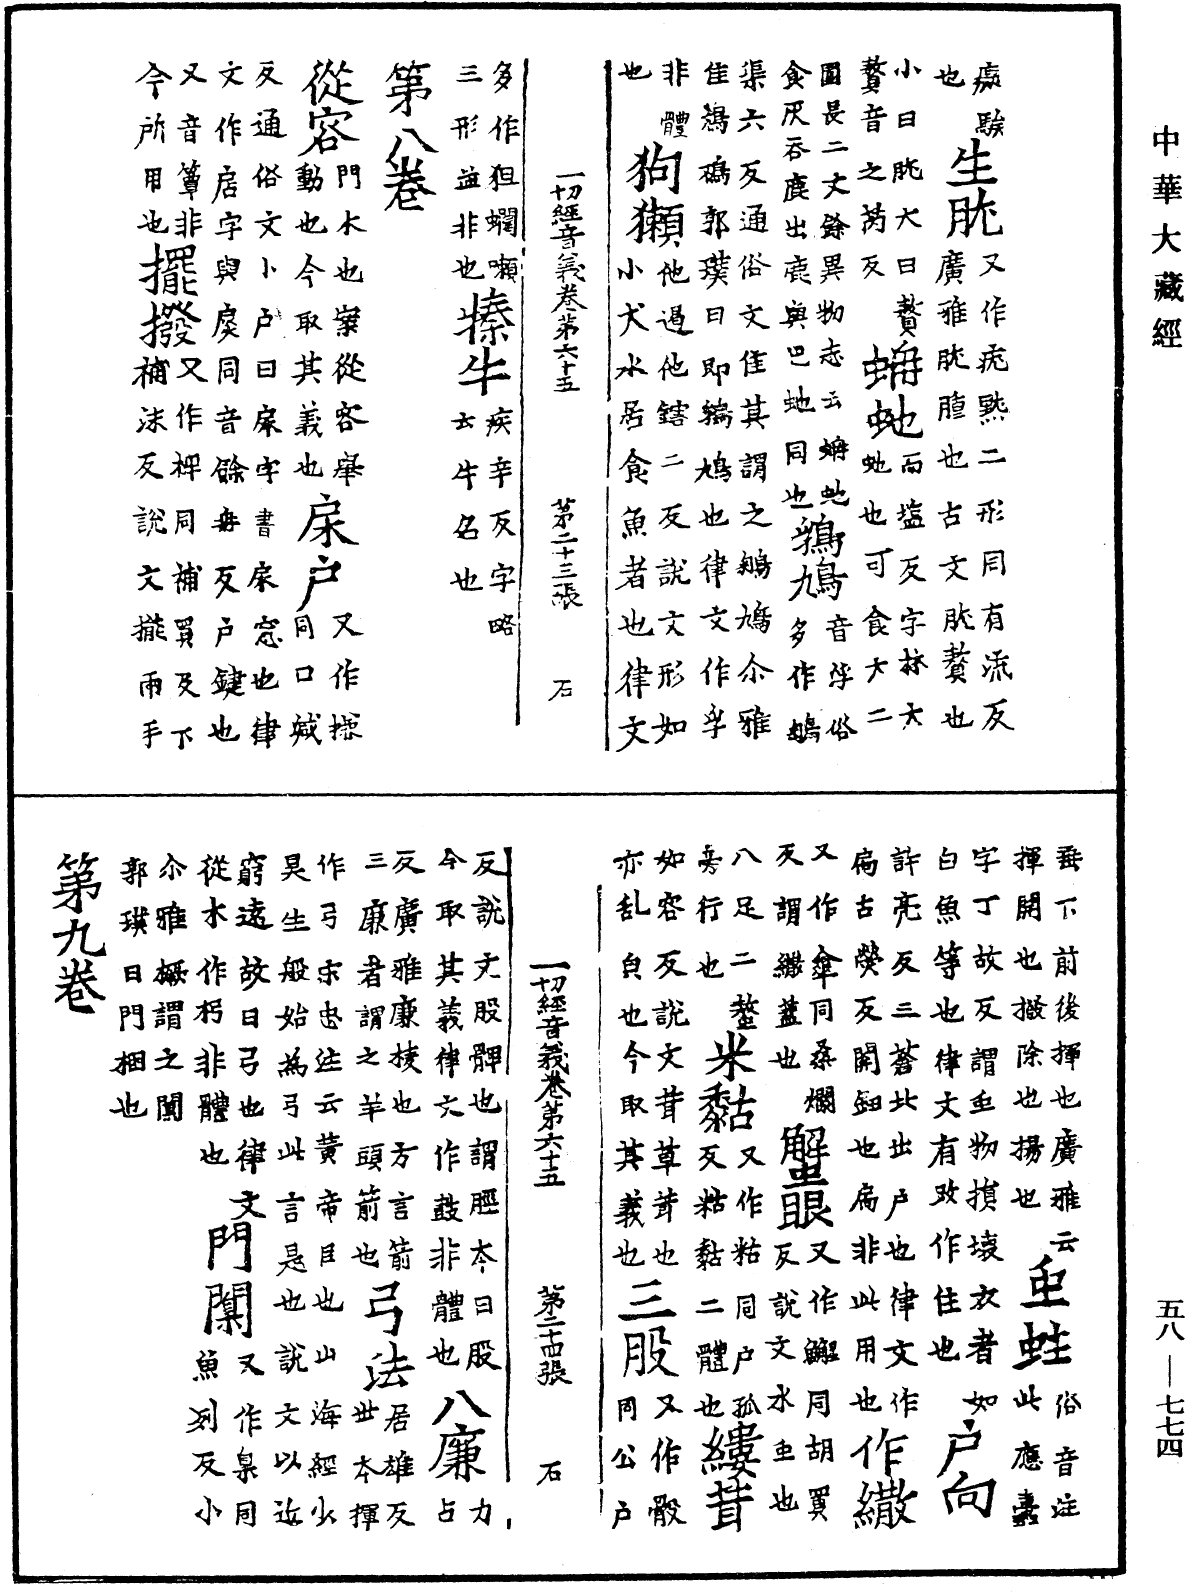 中華大藏經
𤸷騃也生胅廣雅胅腫也古文胅贅也又作𤴯㿀二形同有流反
小曰胅大曰贅贅音之芮反蚺虵虵也可食大二而塩反字林大
圍長二丈餘異物志云蚺虵食灰吞鹿出鹿與巴虵同也鵓鳩音浮俗多作鵓
渠六反通俗文佳其謂之鵓鳩尒雅佳鵓鴀郭璞曰即鳩也律文作孚
非體也狗獺他過他鎋二反說文形如小犬水居食魚者也律文
一切經音義卷第六十五 第二十三張 石
多作狙𧔞㘔三形並非也㨷牛疾辛反字略云牛名也
第八卷
從容門木也案從容舉動也今取其義也㦿户又作㨙同口緘
反通俗文小户曰㦿字書㦿窓也律文作扂字與扊同音餘冉反户鍵也
又音簟非今所用也擺撥又作捭同補買反下補沫反說文擺兩手
垂下前後揮也廣雅云揮開也撥除也揚也䖝蛀俗音注此應蠹
字丁故反謂䖝物損壞衣者如白魚等也律文有改作住也户向
許亮反三蒼北出户也律文作扃古熒反關鈕也扃非此用也作繖
又作傘同桑爛反謂繖蓋也蟹眼又作𩼤同胡買反說文水䖝也
八足二螯旁行也米黏又作粘同户孤反粘黏二體也縷茸
如容反說文茸草茸也亦亂皃也今取其義也三股又作骰同公户
一切經音義卷第六十五 第二十四張 石
反說文股髀也謂脛本曰股今取其義律文作鼓非體也八廉力占
反廣雅廉棱也方言箭三廉者謂之羊頭箭也弓法居雄反世本揮
作弓宋忠注云黃帝臣也山海經少昊生般始為弓此言是也說文以近
窮遠故曰弓也律文從木作杇非體也門闑又作臬同魚列反小
尒雅橛謂之闑郭璞曰門梱也
第九卷
五八—七七四